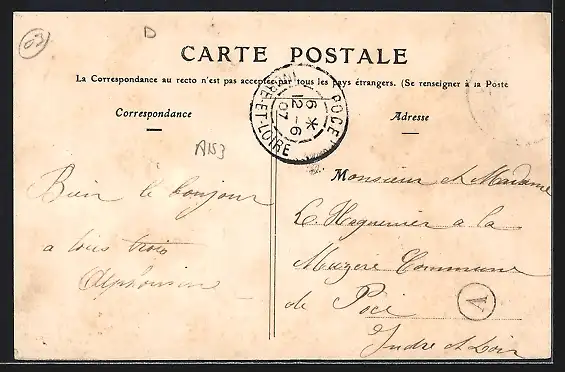 03
D
CARTE POSTALE
La Correspondance au recto n'est pas acceptée par tous les pays étrangers. (Se renseigner à la Poste
Correspondance
Adresse
POCÉ
6 *
12 - 6
07
INDRE-ET-LOIRE
A153
Bien le bonjour
a tous trois
Alphonsine
Monsieur et Madame
L. Haguenier a la
Commune
de Pocé
A
Indre et Loir